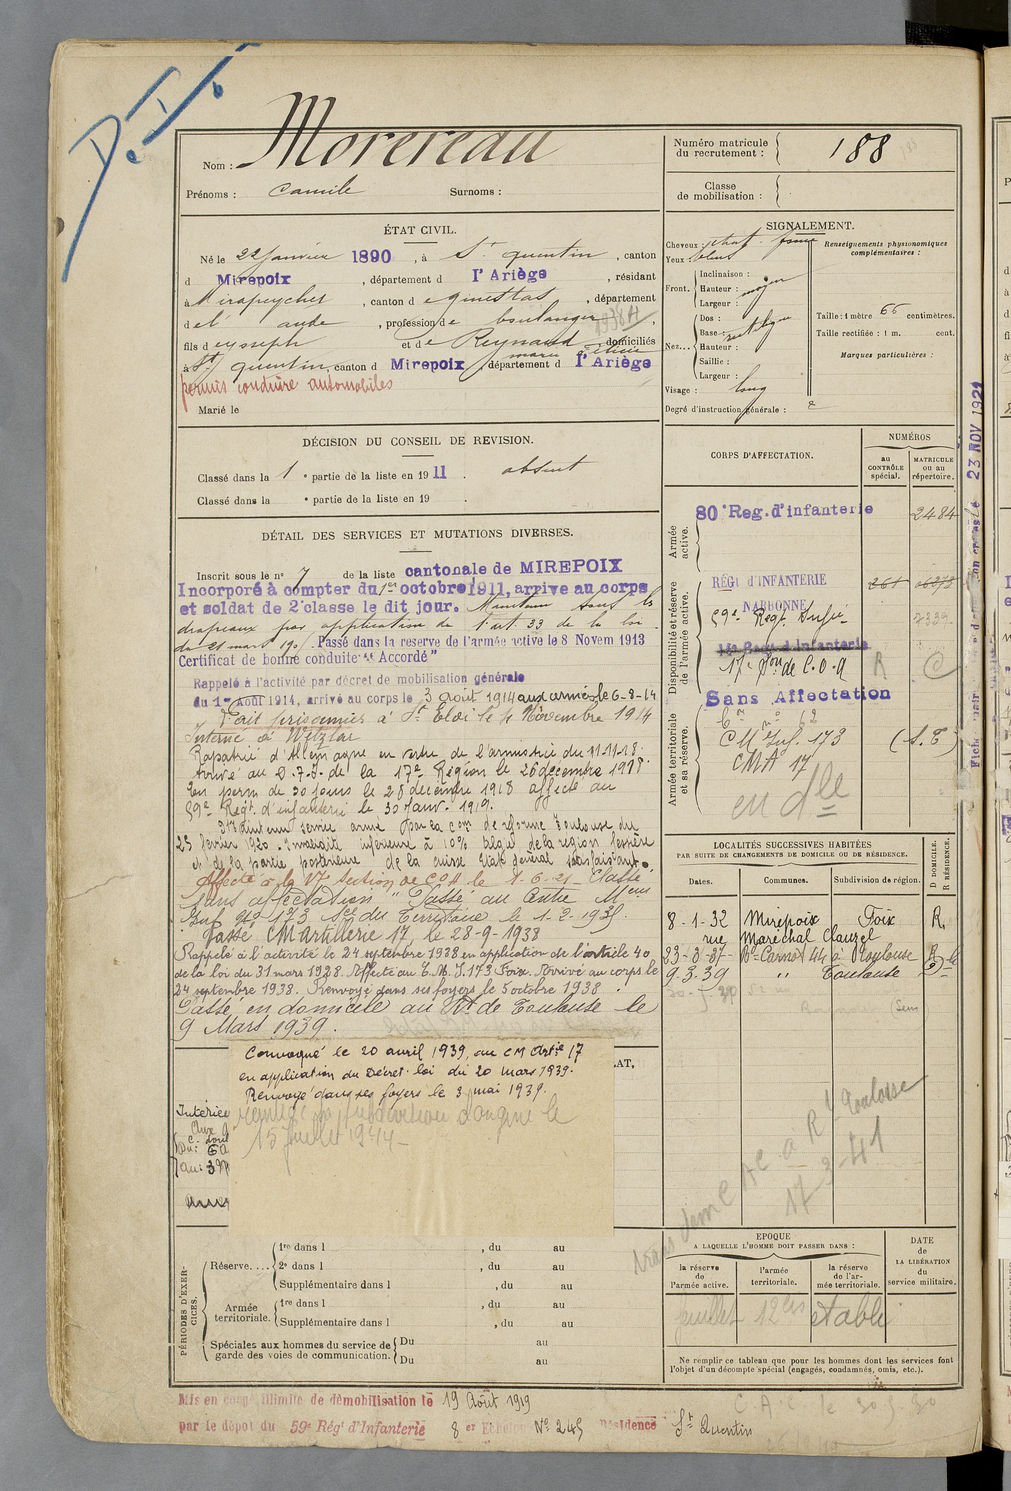 D. I.
Nom : Morereau
Prénoms : Camile Surnoms :
Numéro matricule du recrutement : 188
Classe de mobilisation :
ÉTAT CIVIL.
Né le 22 janvier 1890, à St quentin, canton
d Mirepoix, département d l'Ariège, résidant
à Mirapeycher, canton de ginestas, département
de l' aude, profession de boulanger
fils de joseph et de Reynaud marie félicie domiciliés
à St quentin, canton d Mirepoix, département d l'Ariège
permis conduire automobiles
Marié le
SIGNALEMENT.
Cheveux : chat. foncé
Yeux : bleus
Front. Inclinaison :
Hauteur : moyen
Largeur :
Nez... Dos :
Base : rectiligne
Hauteur :
Saillie :
Largeur :
Visage : long
Degré d'instruction générale : 2
Renseignements physionomiques complémentaires :
Taille : 1 mètre 66 centimètres.
Taille rectifiée : 1 m. cent.
Marques particulières :
DÉCISION DU CONSEIL DE REVISION.
Classé dans la 1 e partie de la liste en 1911. absent
Classé dans la e partie de la liste en 19 .
DÉTAIL DES SERVICES ET MUTATIONS DIVERSES.
Inscrit sous le n° 7 de la liste cantonale de MIREPOIX
Incorporé à compter du 1er octobre 1911, arrive au corps
et soldat de 2e classe le dit jour. Maintenu sous les
drapeaux par application de l'art. 33 de la loi
du 21 mars 190 . Passé dans la reserve de l'armée active le 8 Novem 1913
Certificat de bonne conduite "Accordé"
Rappelé à l'activité par décret de mobilisation générale
du 1er Août 1914, arrivé au corps le 3 août 1914 aux armées le 6-8-14
Fait prisonnier à St Eloi le 4 Novembre 1914
Interné à Wetzlar
Rapatrié d'Allemagne en vertu de l'armistice du 11.11.18.
Arrivé au D.7.I. de la 17e Région le 26 decembre 1918
En perm de 30 jours le 28 decembre 1918 affecté au
59e Regt d'infanterie le 30 Janv. 1919.
Maintenu service armé par la com de réforme Toulouse du
25 Fevrier 1920. Invalidité inférieure à 10% de la region fessière
et de la partie postérieure de la cuisse Etat général satisfaisant.
Affecté à la 17 Section de COA le 1-6-21 Classé
"Sans affectation" Passé au Centre Meur
Inf No 173 du Territoire le 1-2-193
Passé CM artillerie 17 le 28-9-1938
Rappelé à l'activité le 24 septembre 1938 en application de l'article 40
de la loi du 31 mars 1928. Affecté au C.M.I. 173 Foix. Arrivé au corps le
24 septembre 1938. Renvoyé dans ses foyers le 5 octobre 1938
Passé en domicile au Rt de Toulouse le
9 Mars 1939.
Convoqué le 20 avril 1939, au CM Artie 17
en application du Décret-loi du 20 mars 1939.
Renvoyé dans ses foyers le 3 mai 1939.
15 Juillet 1944
CORPS D'AFFECTATION.
NUMÉROS
au CONTRÔLE spécial.
MATRICULE ou au répertoire.
Armée active.
80e Reg. d'infanterie 2484
Disponibilité et réserve de l'armée active.
RÉGt d'INFANTERIE
NARBONNE
59e Regt Infie 7339
17e Son de C.O.A R C
Sans Affectation
Armée territoriale et sa réserve.
CM Inf. 173 (A.T)
CMA 17
en dle
LOCALITÉS SUCCESSIVES HABITÉES
PAR SUITE DE CHANGEMENTS DE DOMICILE OU DE RÉSIDENCE.
Dates. Communes. Subdivision de région. D DOMICILE. R RÉSIDENCE.
8-1-32 Mirepoix Foix R.
rue Maréchal Clauzel
Bd Carnot 44 à Toulouse R
9.3.39 " Toulouse D
Toulouse
17-3-41
Fiche 23 NOV 1921
PÉRIODES D'EXERCICES.
Réserve.... 1re dans l , du au
2e dans l , du au
Supplémentaire dans l , du au
Armée territoriale. 1re dans l , du au
Supplémentaire dans l , du au
Spéciales aux hommes du service de garde des voies de communication. Du au
Du au
EPOQUE
A LAQUELLE L'HOMME DOIT PASSER DANS :
la réserve de l'armée active.
l'armée territoriale.
la réserve de l'armée territoriale.
DATE de LA LIBÉRATION du service militaire.
juillet 12 bis établi
Ne remplir ce tableau que pour les hommes dont les services font
l'objet d'un décompte spécial (engagés, condamnés, omis, etc.).
Mis en congé illimité de démobilisation le 19 Août 1919
par le dépôt du 59e Régt d'Infanterie 8 er Echelon No 245 Résidence St Quentin